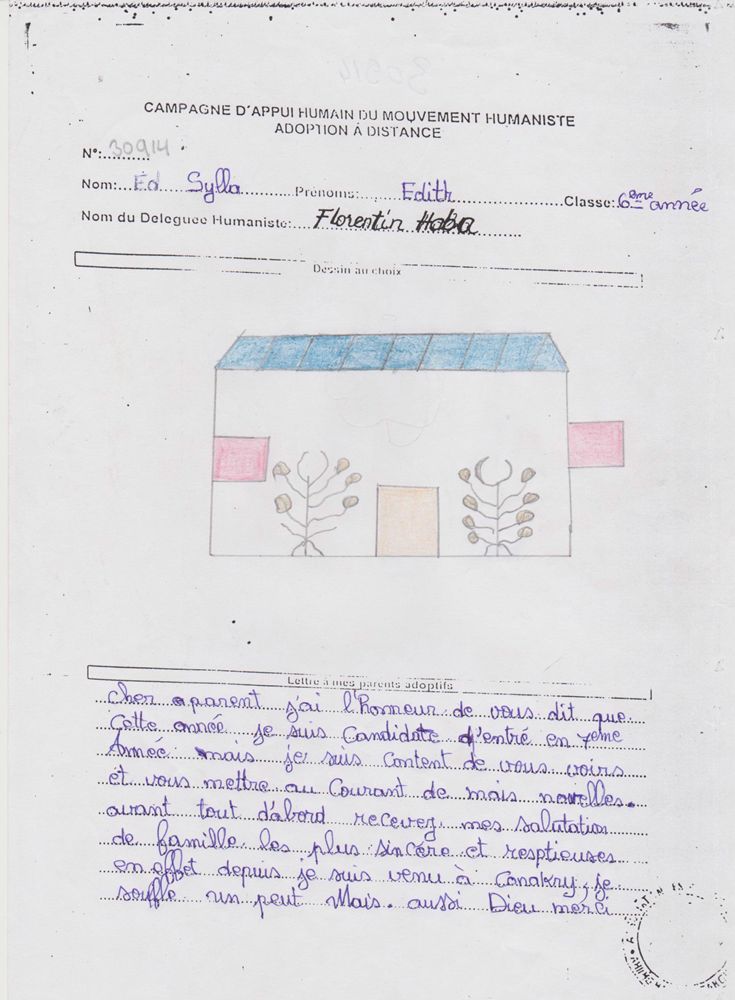 CAMPAGNE D'APPUI HUMAIN DU MOUVEMENT HUMANISTE
ADOPTION À DISTANCE
N°:30914
Nom:...Ed Sylla Prénoms: Edith Classe: 6eme année
Nom du Deleguee Humaniste: Florentin Haba
Dessin au choix
Lettre à mes parents adoptifs
cher aparent j'ai l'honneur de vous dit que
Cette année je suis Candidate d'entré en 7eme
Année mais je suis content de vous voirs
et vous mettre au Courant de mais nouvelles.
avant tout d'abord recevez mes salutation
de famille les plus sincère et resptieuses
en effet depuis je suis venu à Conakry, je
souffle un peut Mais. aussi Dieu merci